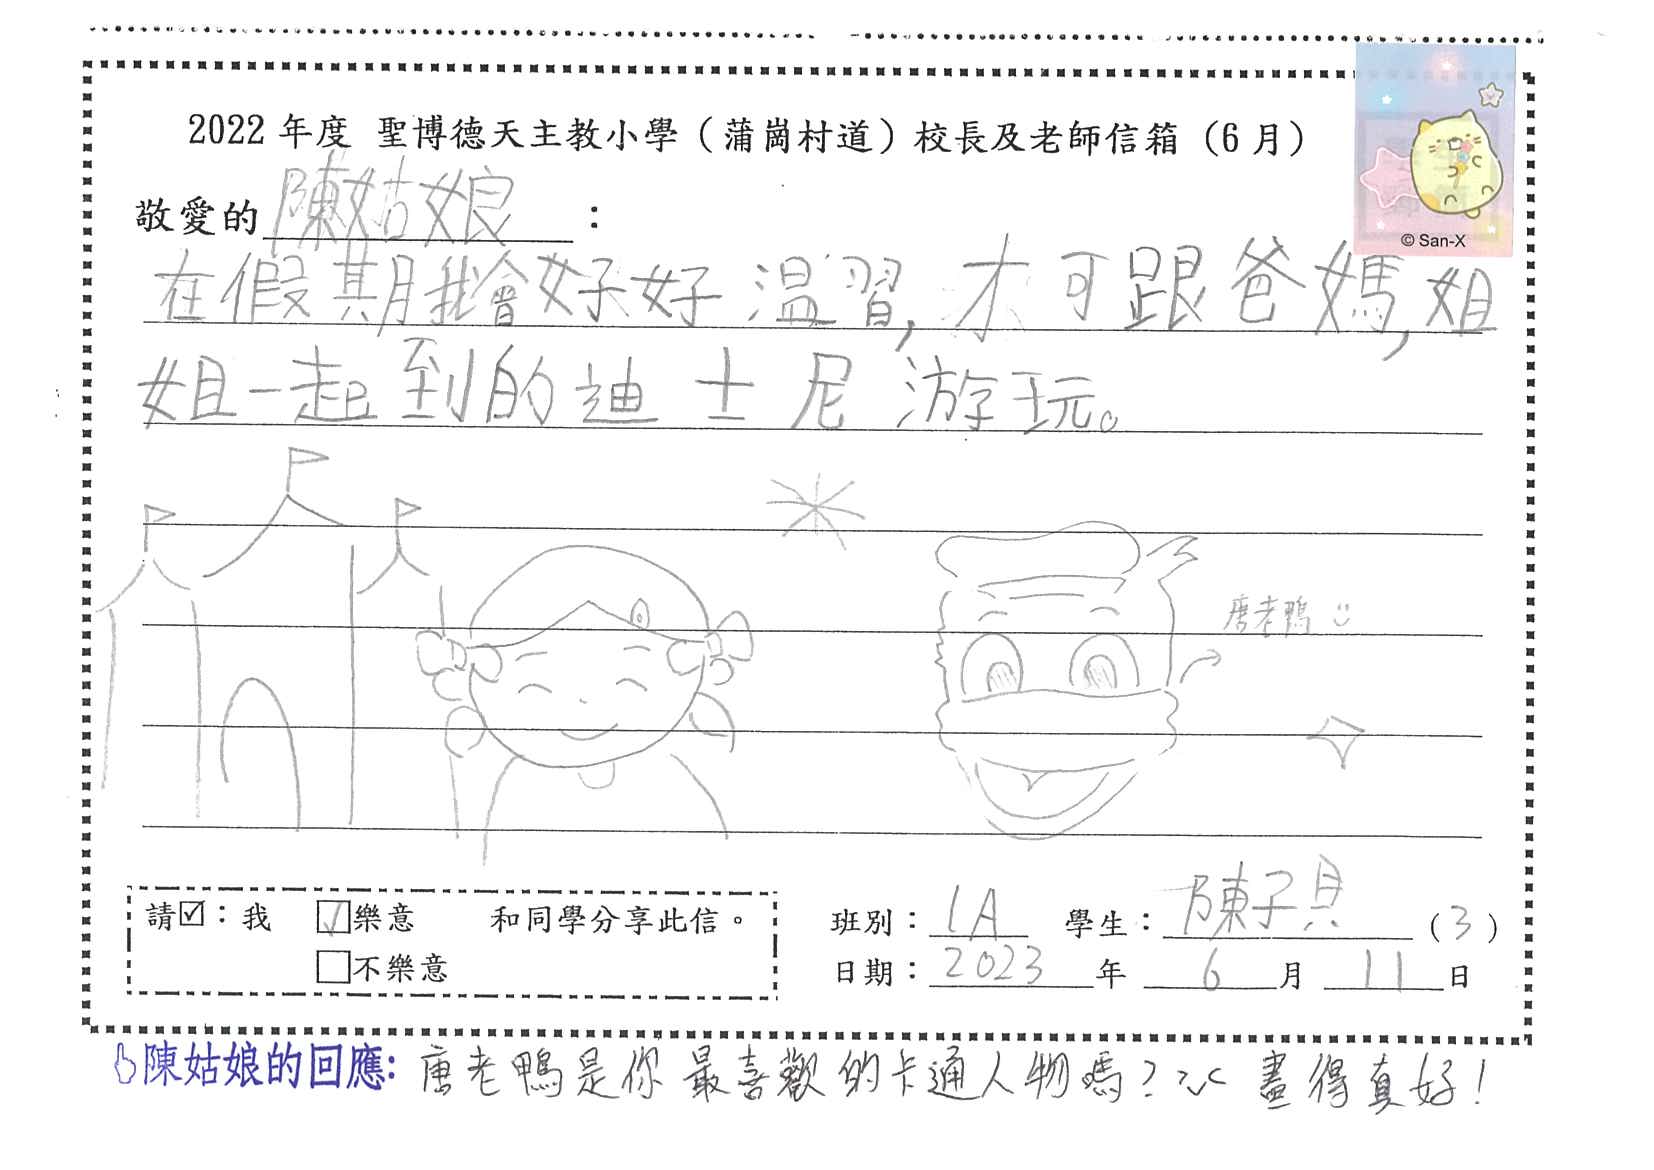 2022 年度 聖博德天主教小學（蒲崗村道）校長及老師信箱（6 月）
© San-X
敬愛的陳姑娘：
在假期我會好好溫習,才可跟爸媽,姐
姐一起到的迪士尼游玩。
唐老鴨
請☑：我 ☑樂意 和同學分享此信。
□不樂意
班別：1A 學生：陳子貝（3）
日期：2023年6月11日
陳姑娘的回應: 唐老鴨是你最喜歡的卡通人物嗎? 畫得真好!